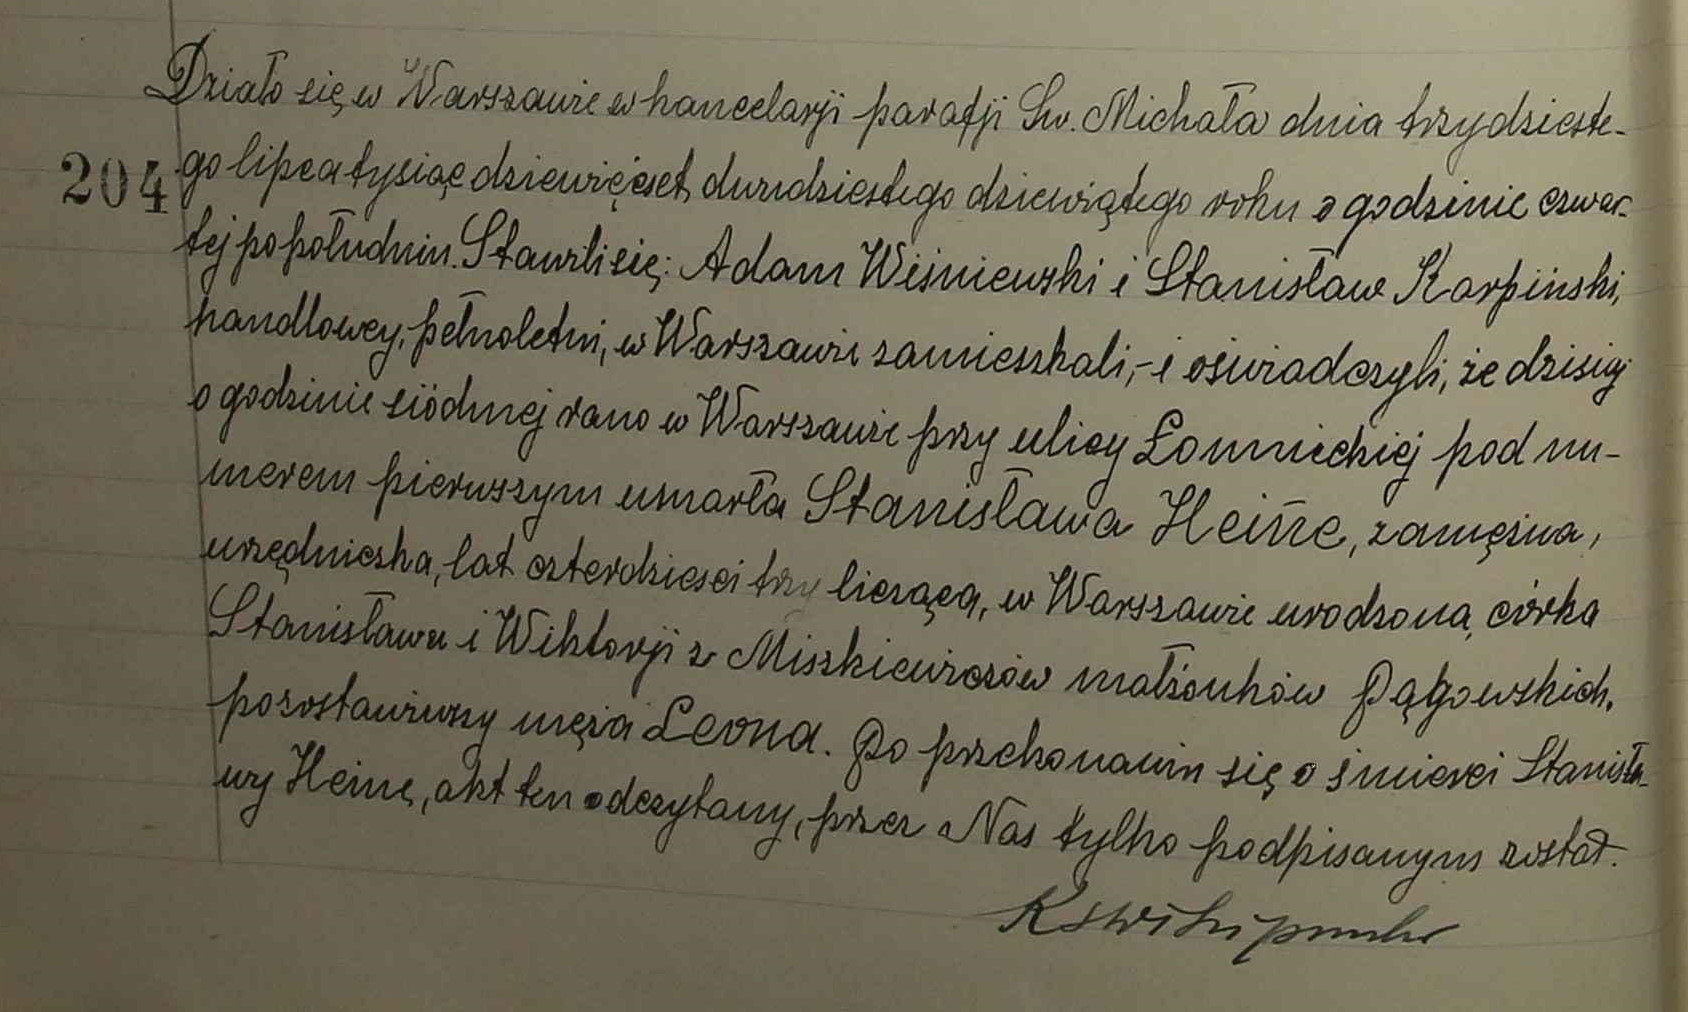 Działo się w Warszawie w kancelarji parafji Św. Michała dnia trzydzieste-
204
go lipca tysiąc dziewięćset dwudziestego dziewiątego roku o godzinie czwar-
tej po południu. Stawili się: Adam Wiśniewski i Stanisław Karpiński,
handlowcy, pełnoletni, w Warszawie zamieszkali,- i oświadczyli, że dzisiaj
o godzinie siódmej rano w Warszawie przy ulicy Łomnickiej pod nu-
merem pierwszym umarła Stanisława Heine, zamężna,
urzędniczka, lat czterdzieści trzy licząca, w Warszawie urodzona, córka
Stanisława i Wiktorji z Miszkiewiczów małżonków Pągowskich,
pozostawiwszy męża Leona. Po przekonaniu się o śmierci Stanisła-
wy Heine, akt ten odczytany, przez Nas tylko podpisanym został.